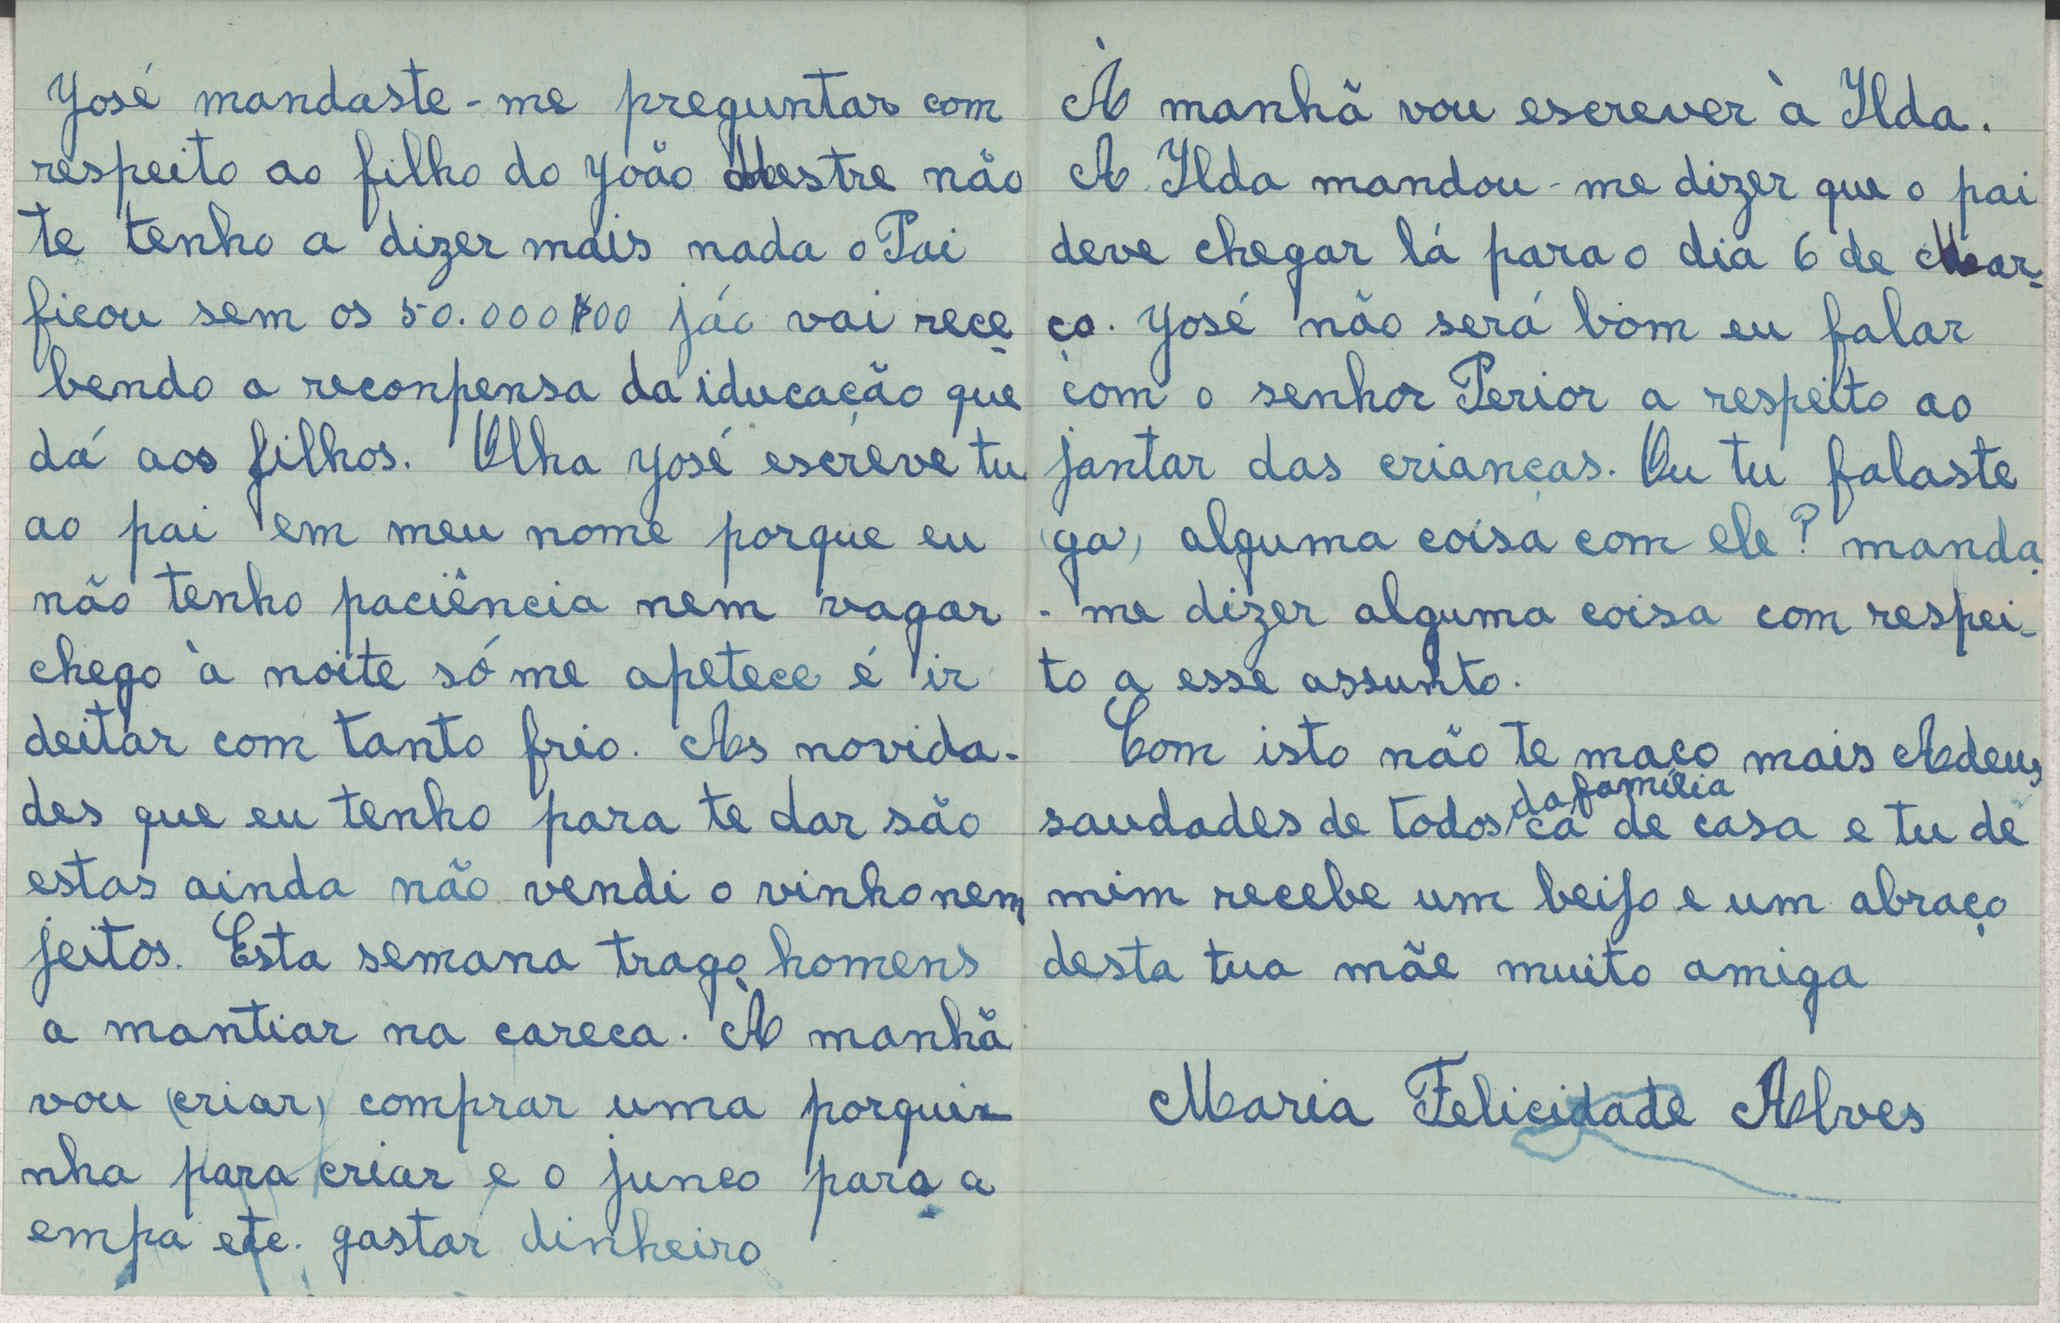 José mandaste-me preguntar com
respeito ao filho do João Mestre não
te tenho a dizer mais nada o Pai
ficou sem os 50.000$00 já vai rece
bendo a reconpensa da iducação que
dá aos filhos. Olha José escreve tu
ao pai em meu nome porque eu
não tenho paciência nem vagar
chego à noite só me apetece é ir
deitar com tanto frio. As novida-
des que eu tenho para te dar são
estas ainda não vendi o vinho nem
jeitos. Esta semana trago homens
a mantiar na careca. À manhã
vou (criar) comprar uma porqui-
nha para criar e o junco para a
empa etc. gastar dinheiro
À manhã vou escrever à Ilda.
A Ilda mandou-me dizer que o pai
deve chegar lá para o dia 6 de Mar-
ço. José não será bom eu falar
com o senhor Perior a respeito ao
jantar das crianças. Ou tu falaste
(ga) alguma coisa com ele? manda
-me dizer alguma coisa com respei-
to a esse assunto.
Com isto não te maço mais Adeus
saudades de todos da família cá de casa e tu de
mim recebe um beijo e um abraço
desta tua mãe muito amiga
Maria Felicidade Alves